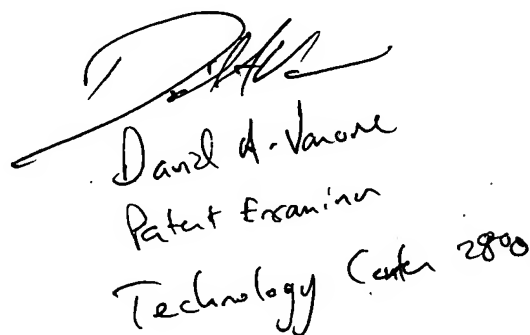 David A. Vanore
Patent Examiner
Technology Center 2800